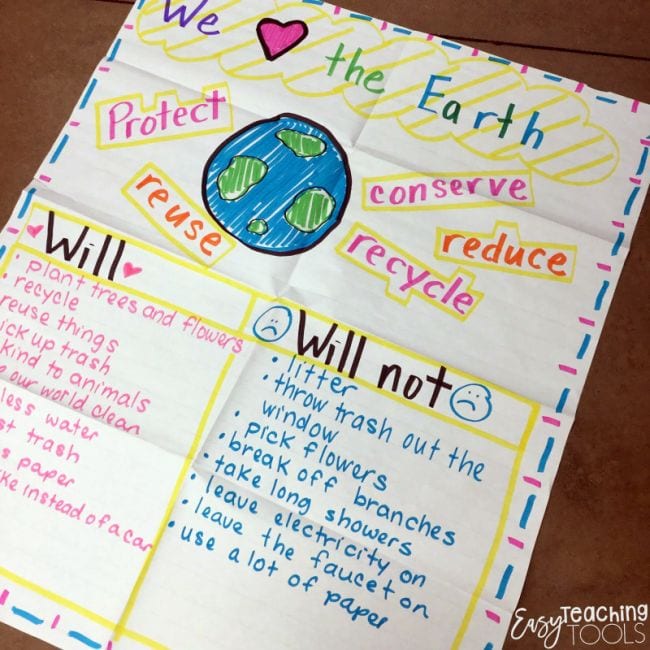 We the Earth
Protect
conserve
reuse
recycle
reduce
Will
• plant trees and flowers
• recycle
reuse things
ick up trash
kind to animals
our world clean
less water
st trash
paper
ke instead of a car
Will not
• litter
• throw trash out the
window
• pick flowers
• break off branches
• take long showers
• leave electricity on
• leave the faucet on
• use a lot of paper
Easy TEACHING
TOOLS